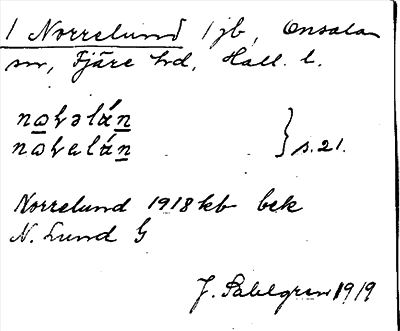 1 Norrelund 1 jb, Onsala
sn, Fjäre hd, Hall. l.
nɷhəlán
nɷhelán } s. 21.
Norrelund 1918 kb bek
N. Lund G
J. Sahlgren 1919